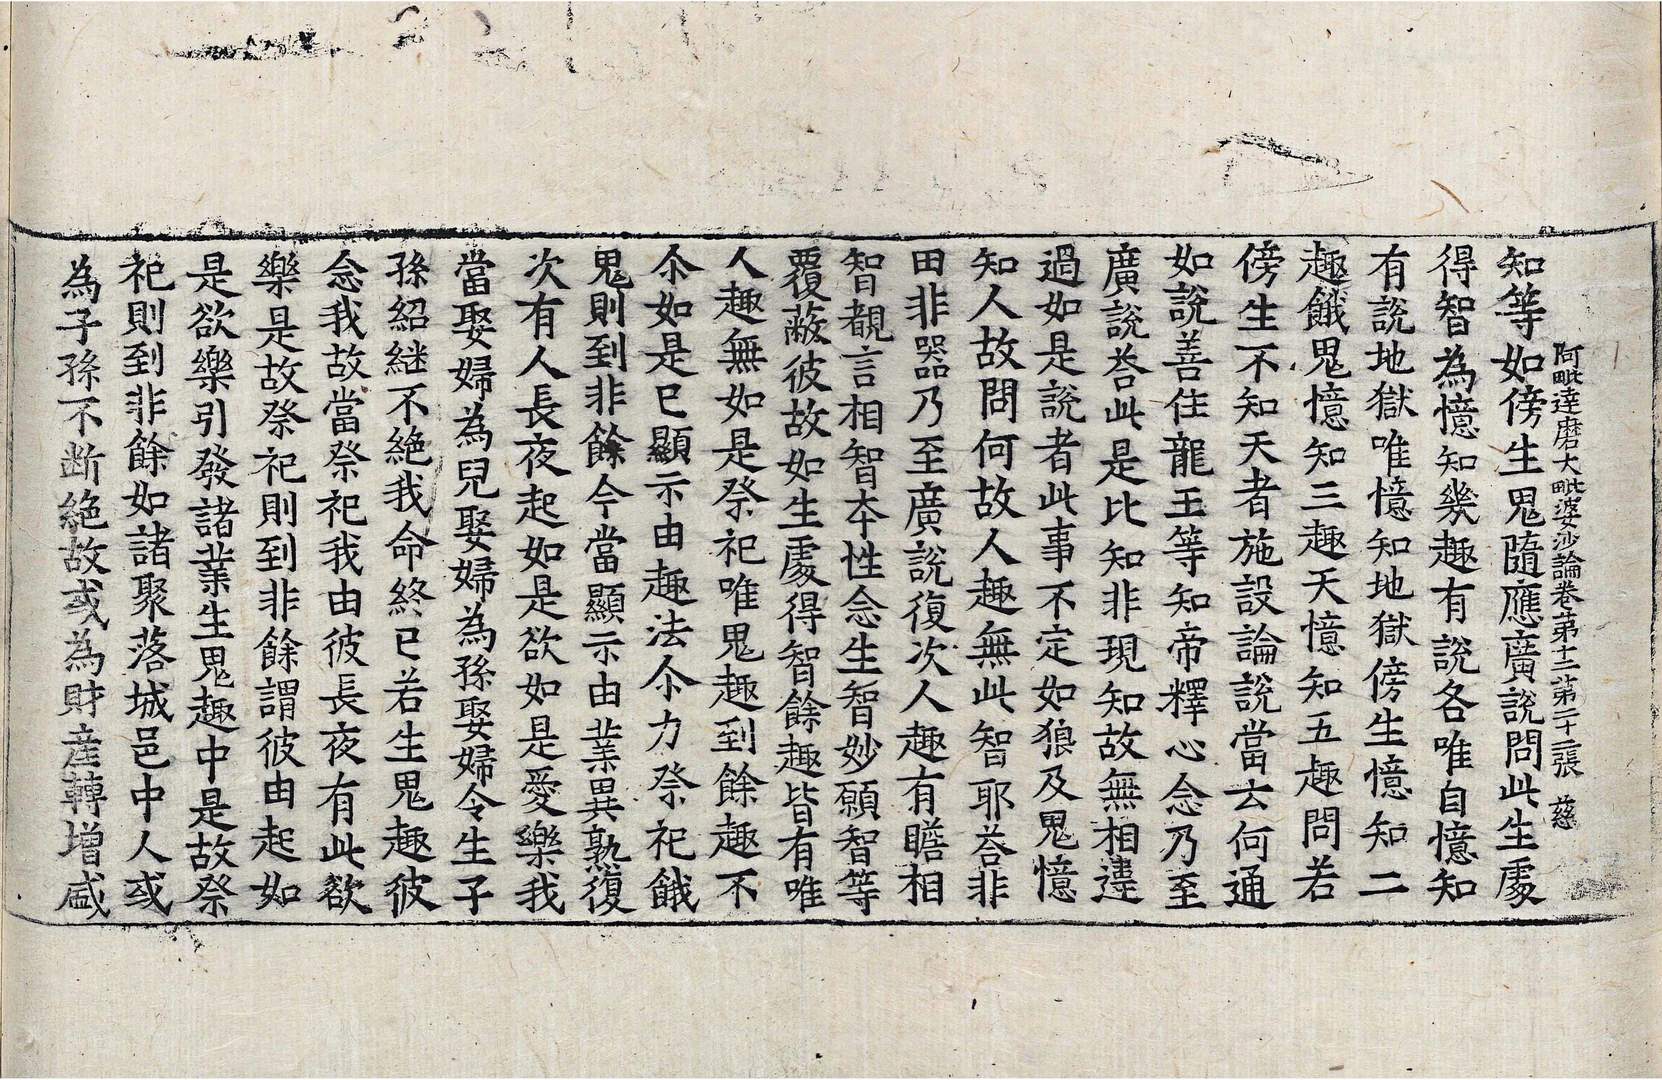 阿毗達磨大毗婆沙論卷第十二第二十二張　慈
知等如傍生鬼隨應廣說問此生處
得智為憶知幾趣有說各唯自憶知
有說地獄唯憶知地獄傍生憶知二
趣餓鬼憶知三趣天憶知五趣問若
傍生不知天者施設論說當云何通
如說善住龍王等知帝釋心念乃至
廣說荅此是比知非現知故無相違
過如是說者此事不定如狼及鬼憶
知人故問何故人趣無此智耶荅非
田非器乃至廣說復次人趣有瞻相
智覩言相智夲性念生智妙願智等
覆蔽彼故如生處得智餘趣皆有唯
人趣無如是祭祀唯鬼趣到餘趣不
尒如是已顯示由趣法尒力祭祀餓
鬼則到非餘今當顯示由業異熟復
次有人長夜起如是欲如是愛樂我
當娶婦為兒娶婦為孫娶婦令生子
孫紹継不絶我命終已若生鬼趣彼
念我故當祭祀我由彼長夜有此欲
樂是故祭祀則到非餘謂彼由起如
是欲樂引發諸業生鬼趣中是故祭
祀則到非餘如諸聚落城邑中人或
為子孫不断絶故或為財產轉增盛